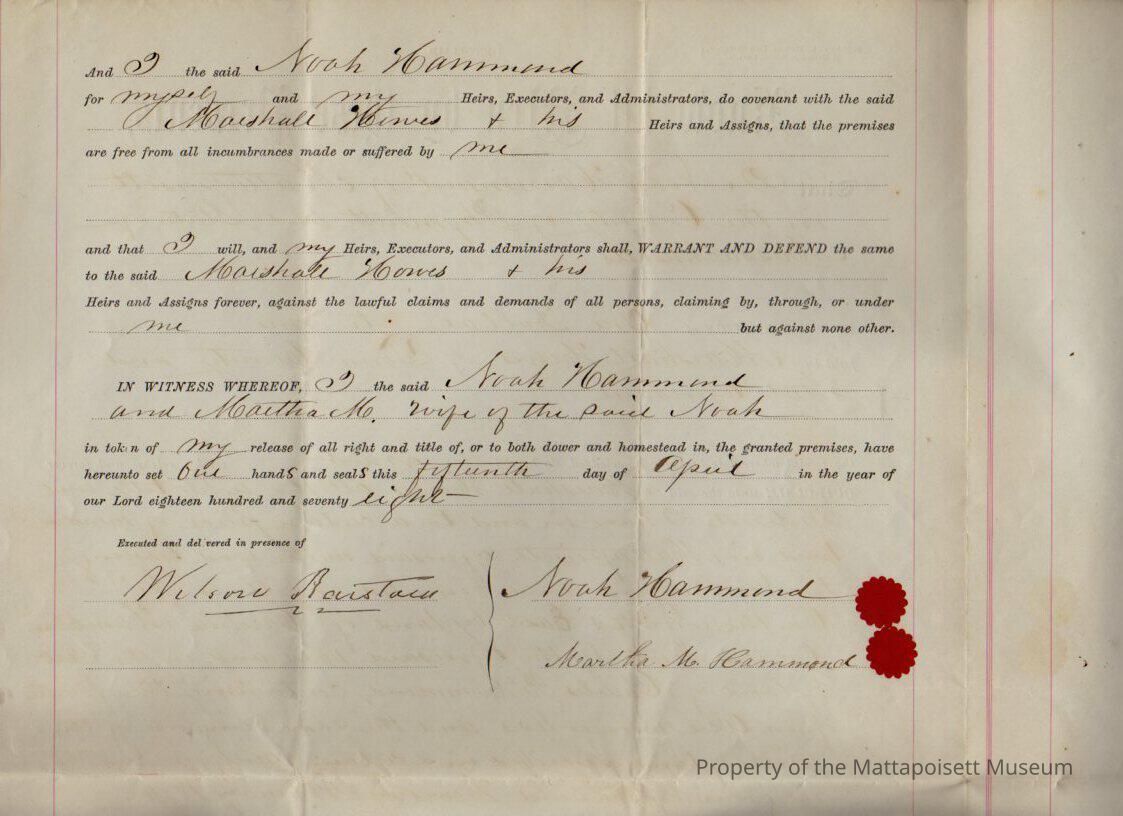 And I the said Noah Hammond
for myself and my Heirs, Executors, and Administrators, do covenant with the said
Marshall Howes & his Heirs and Assigns, that the premises
are free from all incumbrances made or suffered by me
and that I will, and my Heirs, Executors, and Administrators shall, WARRANT AND DEFEND the same
to the said Marshall Howes & his
Heirs and Assigns forever, against the lawful claims and demands of all persons, claiming by, through, or under
me but against none other.
IN WITNESS WHEREOF, I the said Noah Hammond
and Martha M. wife of the said Noah
in token of my release of all right and title of, or to both dower and homestead in, the granted premises, have
hereunto set our hands and seals this fifteenth day of April in the year of
our Lord eighteen hundred and seventy eight
Executed and delivered in presence of
Wilson Barstow Noah Hammond
Martha M. Hammond
Property of the Mattapoisett Museum